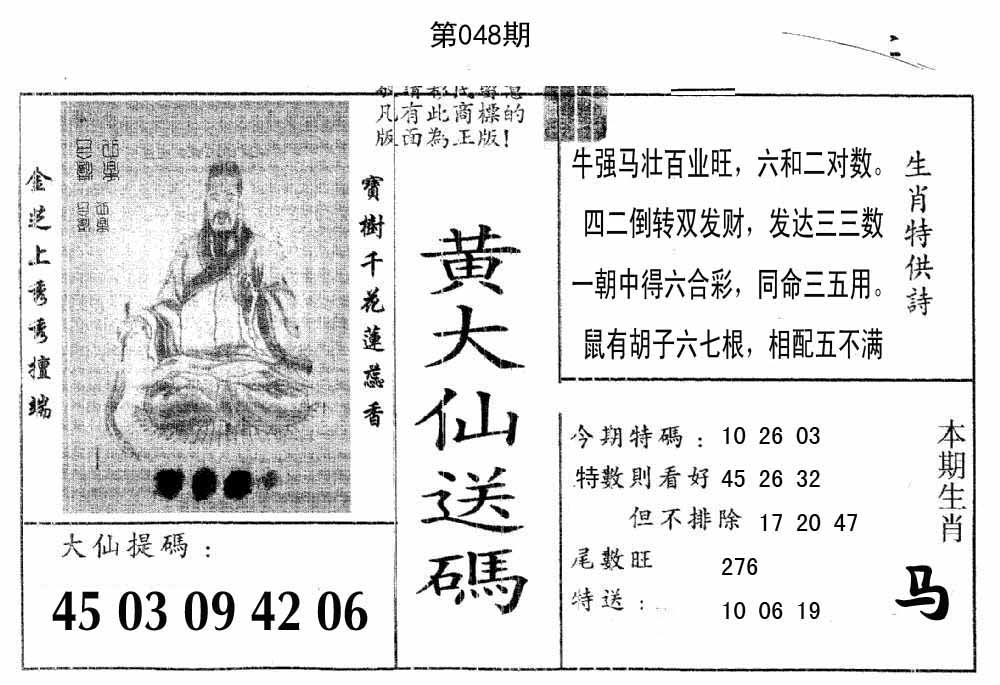 第048期
凡有此商標的
版面為正版!
金芝上秀秀擅端
寶樹千花蓮蕊香
黃大仙送碼
牛强马壮百业旺，六和二对数。
四二倒转双发财，发达三三数
一朝中得六合彩，同命三五用。
鼠有胡子六七根，相配五不满
生肖特供詩
大仙提碼：
45 03 09 42 06
今期特碼：10 26 03
特數則看好 45 26 32
但不排除 17 20 47
尾數旺 276
特送： 10 06 19
本期生肖
马